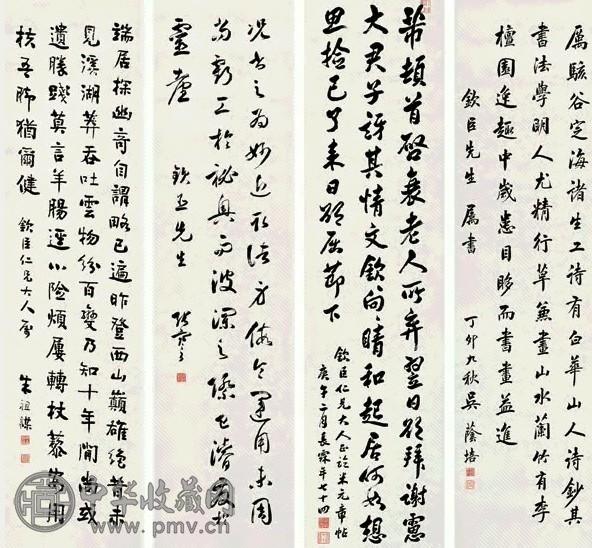 厲駭谷定海諸生工詩有白華山人詩鈔其
書法學明人尤精行草兼畫山水蘭竹有李
檀園逸趣中歲患目眵而書畫益進
欽臣先生屬書
丁卯九秋吳蔭培
芾頓首啓衰老人所弃翌日欲拜謝憲
大君子訝其情文欽向晴和起居何如想
思拾已了來日欲屈節下
欽臣仁兄大人正臨米元章帖
庚午二月長霖年七十四
況書之為妙近取諸身假令運用未周
尚虧工於祕奧而波瀾之際已濬發於
靈臺
欽臣先生
端居探幽奇自謂略已遍昨登西山巔雄絕昔未
見溪湖莽吞吐雲物紛百變乃知十年間尚或
遺勝踐莫言羊腸逕小險煩屢轉杖藜用
吾腳猶爾健
欽臣仁兄大人屬
朱祖謀
中华收藏网
www.pmv.cn